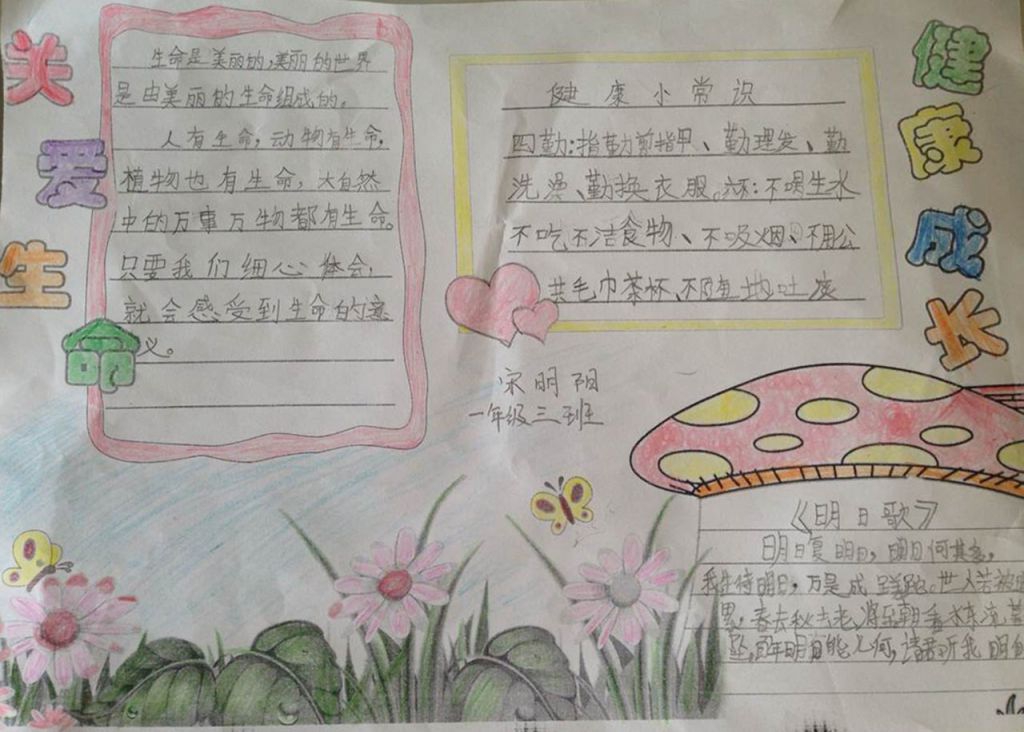 关爱生命
生命是美丽的,美丽的世界
是由美丽的生命组成的。
人有生命,动物有生命,
植物也有生命,大自然
中的万事万物都有生命。
只要我们细心体会,
就会感受到生命的意
义。
健康成长
健康小常识
四勤:指勤剪指甲、勤理发、勤
洗澡、勤换衣服。六不:不喝生水
不吃不洁食物、不吸烟、不用公
共毛巾茶杯、不随地吐痰
宋明阳
一年级三班
《明日歌》
明日复明日,明日何其多,
我生待明日,万是成蹉跎。世人若被明
累,春去秋去老将至朝看水东流暮
坠,百年明日能几何,请君听我明日